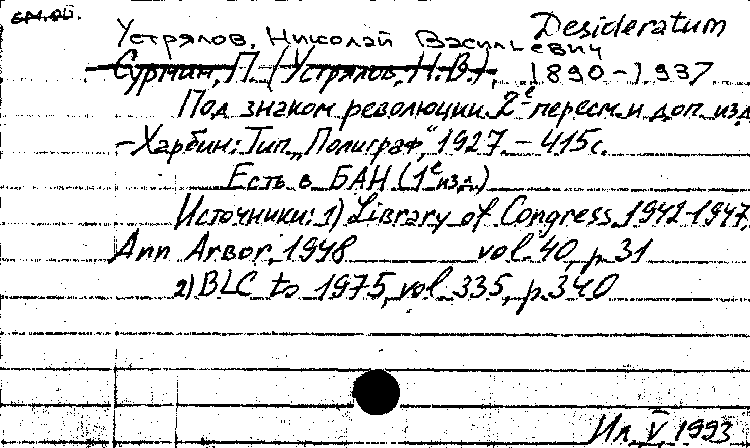 Desideratum
Устрялов, Николай Васильевич
Сурмин, П. (Устрялов, Н.В.), 1890-1937
Под знаком революции. 2е пересм. и доп. изд.
-Харбин: Тип. „Полиграф", 1927. - 415с.
Есть в БАН (1е изд.)
Источники: 1) Library of Congress, 1942-1947,
Ann Arbor, 1948 vol. 40, p. 31
2) BLC to 1975, vol. 335, p. 340
V, 1993